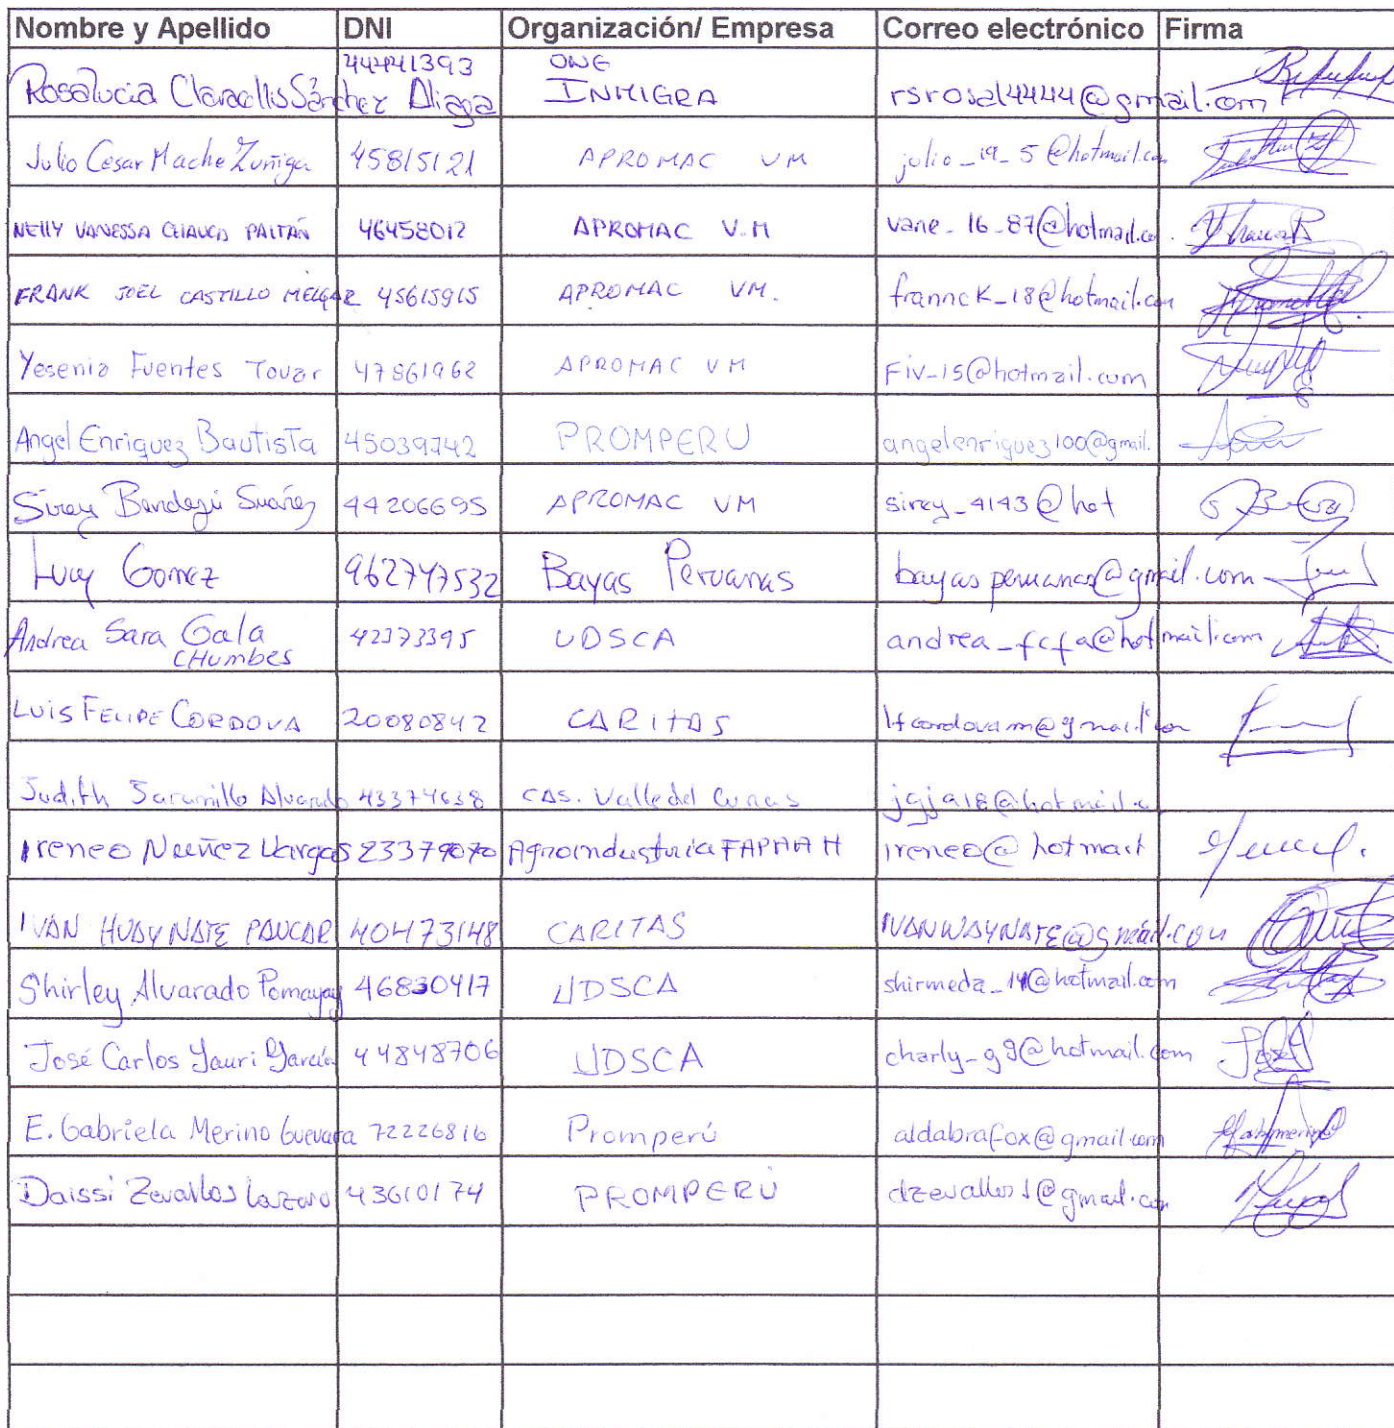 Nombre y Apellido DNI Organización/ Empresa Correo electrónico Firma
44441393 ONG
Rosalucia Sánchez Aliaga INMIGRA rsrosal4444@gmail.com
Julio César Mache Zuñiga 45815121 APROMAC VM julio_19_5@hotmail.com
NELLY VANESSA CHAUCA PAITÁN 46458012 APROMAC V.M vane_16_87@hotmail.co
FRANK JOEL CASTILLO MELGAR 45615915 APROMAC VM. franncK_18@hotmail.com
Yesenia Fuentes Tovar 47861962 APROMAC VM Fiv_15@hotmail.com
Angel Enriquez Bautista 45039742 PROMPERU angelenriquez100@gmail.
Sirey Bendezú Suárez 44206695 APROMAC VM sirey_4143@hot
Lucy Gomez 962747532 Bayas Peruanas bayasperuanas@gmail.com
Andrea Sara Gala 42373395 UDSCA andrea_fcfa@hotmail.com
CHUMBES
LUIS FELIPE CORDOVA 20080842 CARITAS lfcordovam@gmail.com
Judith Jaramillo Alvarado 43374638 CAS. Valle del Cunas jgja18@hotmail.c
Ireneo Nuñez Vargas 23379070 Agroindustria ireneo@hotmail
IVAN HUAYNATE PAUCAR 40473148 CARITAS IVANWAYNATE@gmail.com
Shirley Alvarado Pomayay 46830417 UDSCA shirmeda_14@hotmail.com
José Carlos Yauri García 44848706 UDSCA charly_g9@hotmail.com
E. Gabriela Merino Guevara 72226816 Promperú aldabrafox@gmail.com
Daissi Zevallos Lazaro 43610174 PROMPERÚ dzevallos1@gmail.com